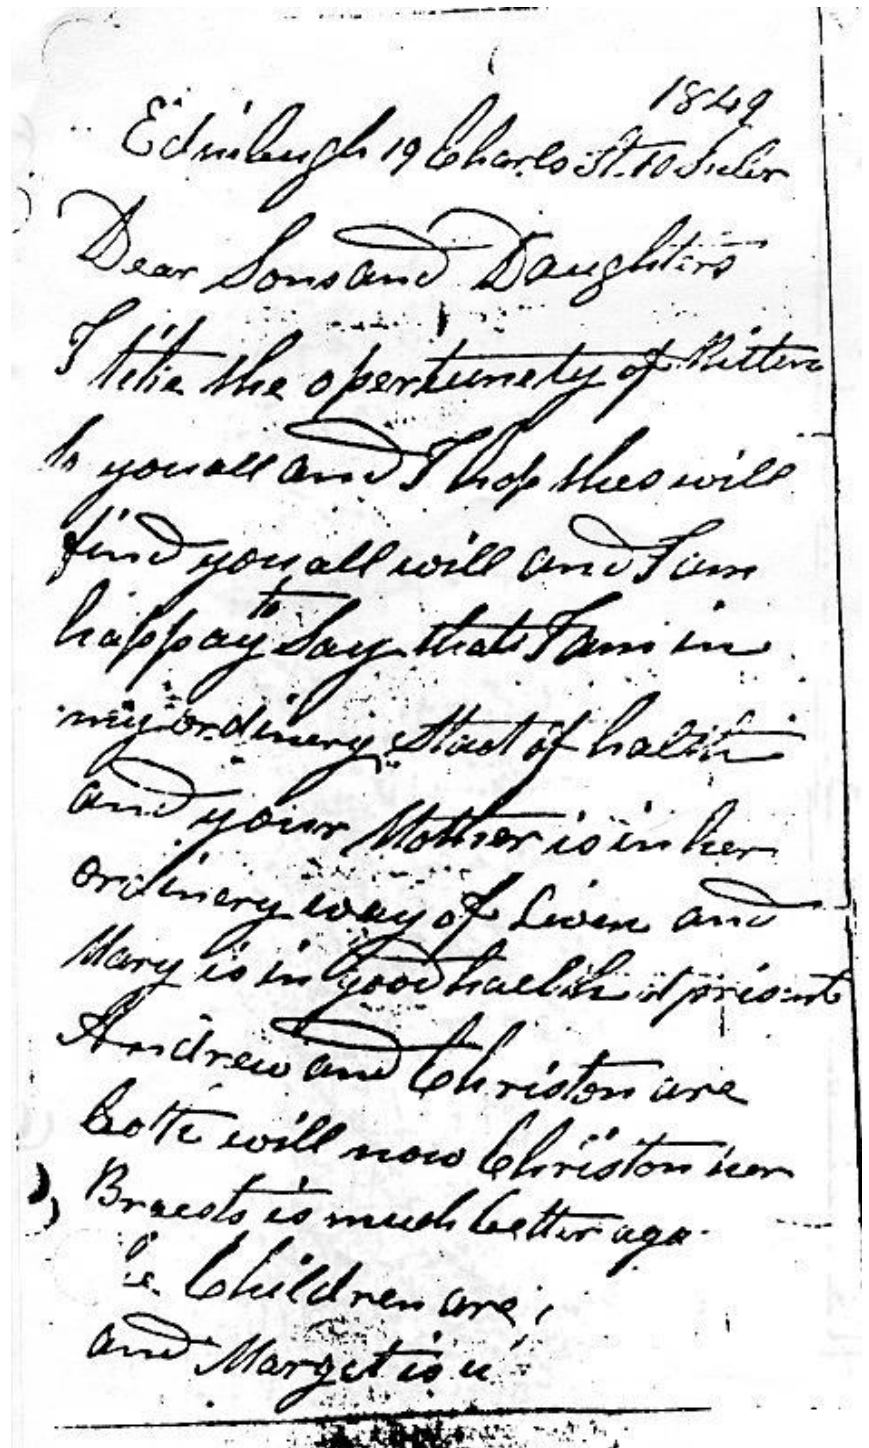 1849
Edinburgh 19 Charls St. 10
Dear Sons and Daughters
I the opertunety of Ritten
to you all and I hop thes will
find you all will and I am
happay to Say thats I am in
my ordinery Staet of halth
and your Mother is in her
ordinery way of Liven and
Mary is in good haelth at prisent
Andrew and Christon are
both will now Christon her
Braests is much better aga
Children are
and Marget is